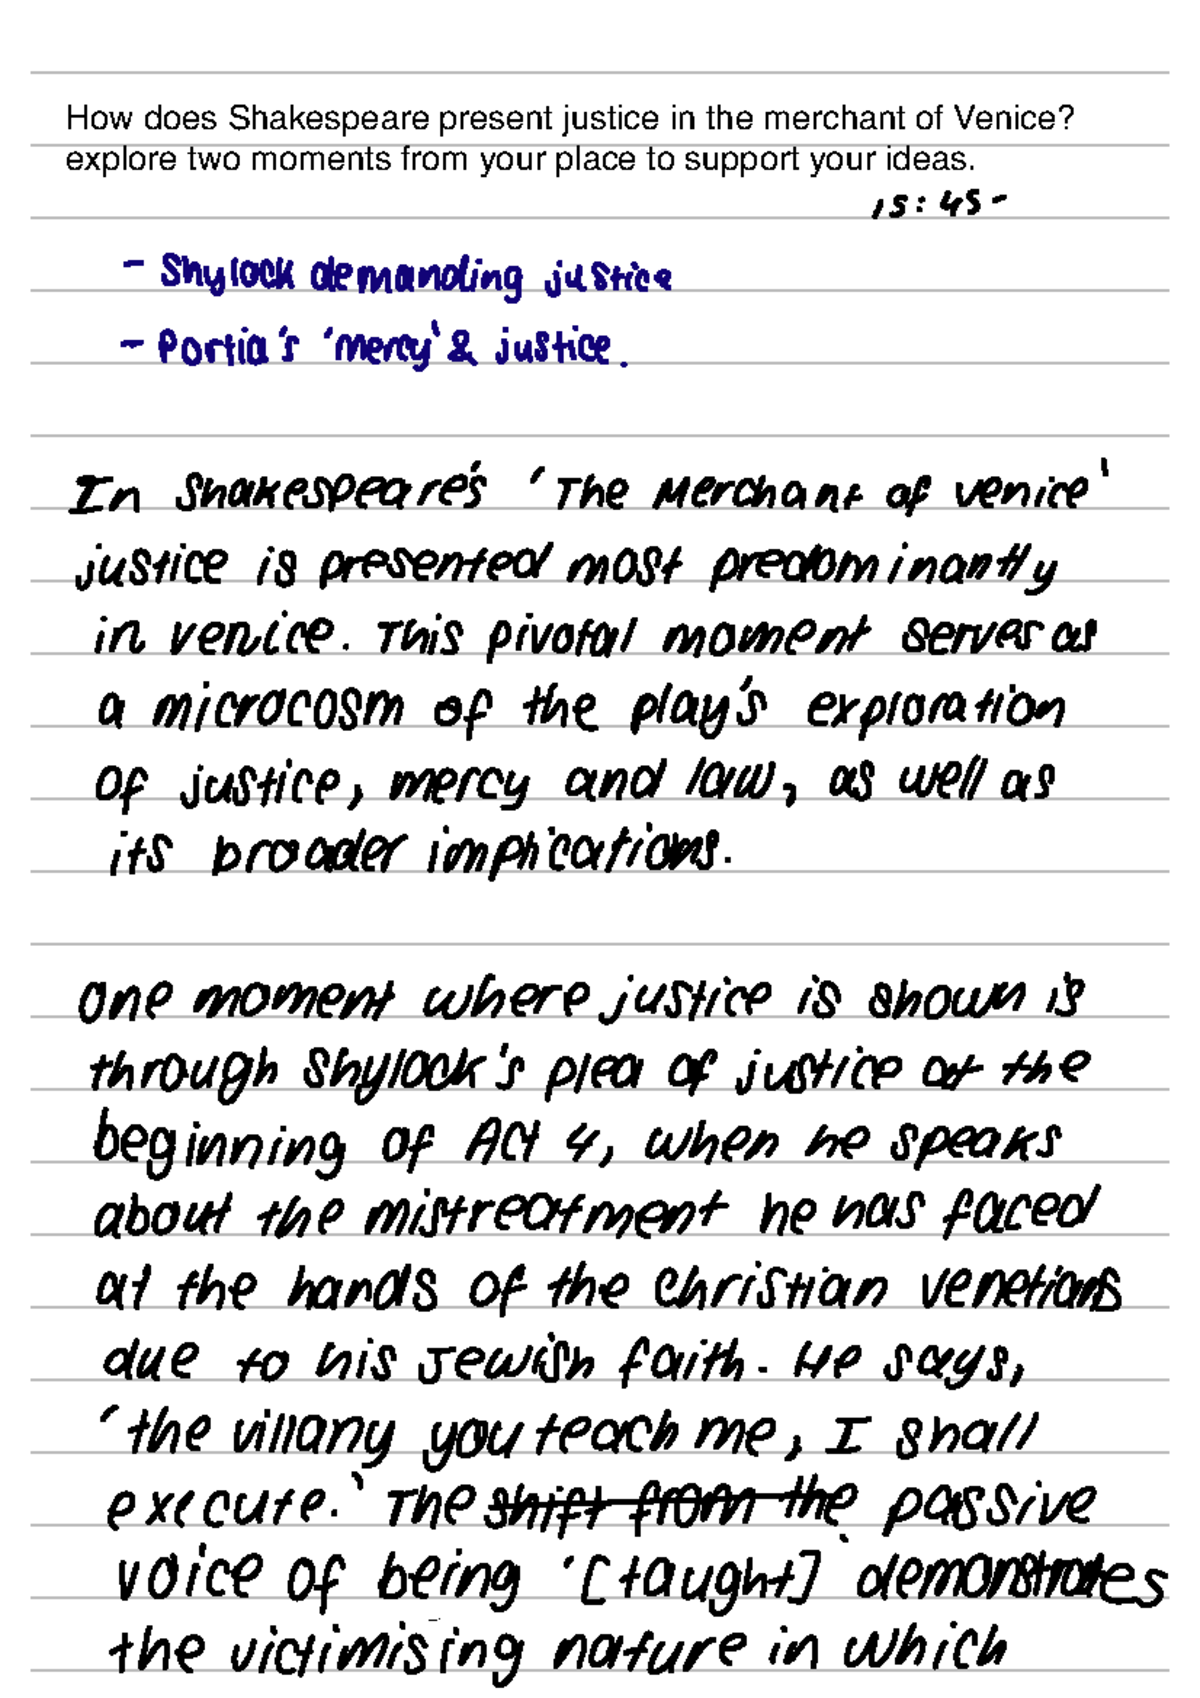 How does Shakespeare present justice in the merchant of Venice?
explore two moments from your place to support your ideas.
15:45-
- Shylock demanding justice
- Portia's 'mercy' & justice.
In Shakespeare's 'The Merchant of Venice'
justice is presented most predominantly
in Venice. This pivotal moment serves as
a microcosm of the play's exploration
of justice, mercy and law, as well as
its broader implications.
One moment where justice is shown is
through Shylock's plea of justice at the
beginning of Act 4, when he speaks
about the mistreatment he has faced
at the hands of the Christian Venetians
due to his Jewish faith. He says,
'the villany you teach me, I shall
execute.' The shift from the passive
voice of being '[taught]' demonstrates
the victimising nature in which